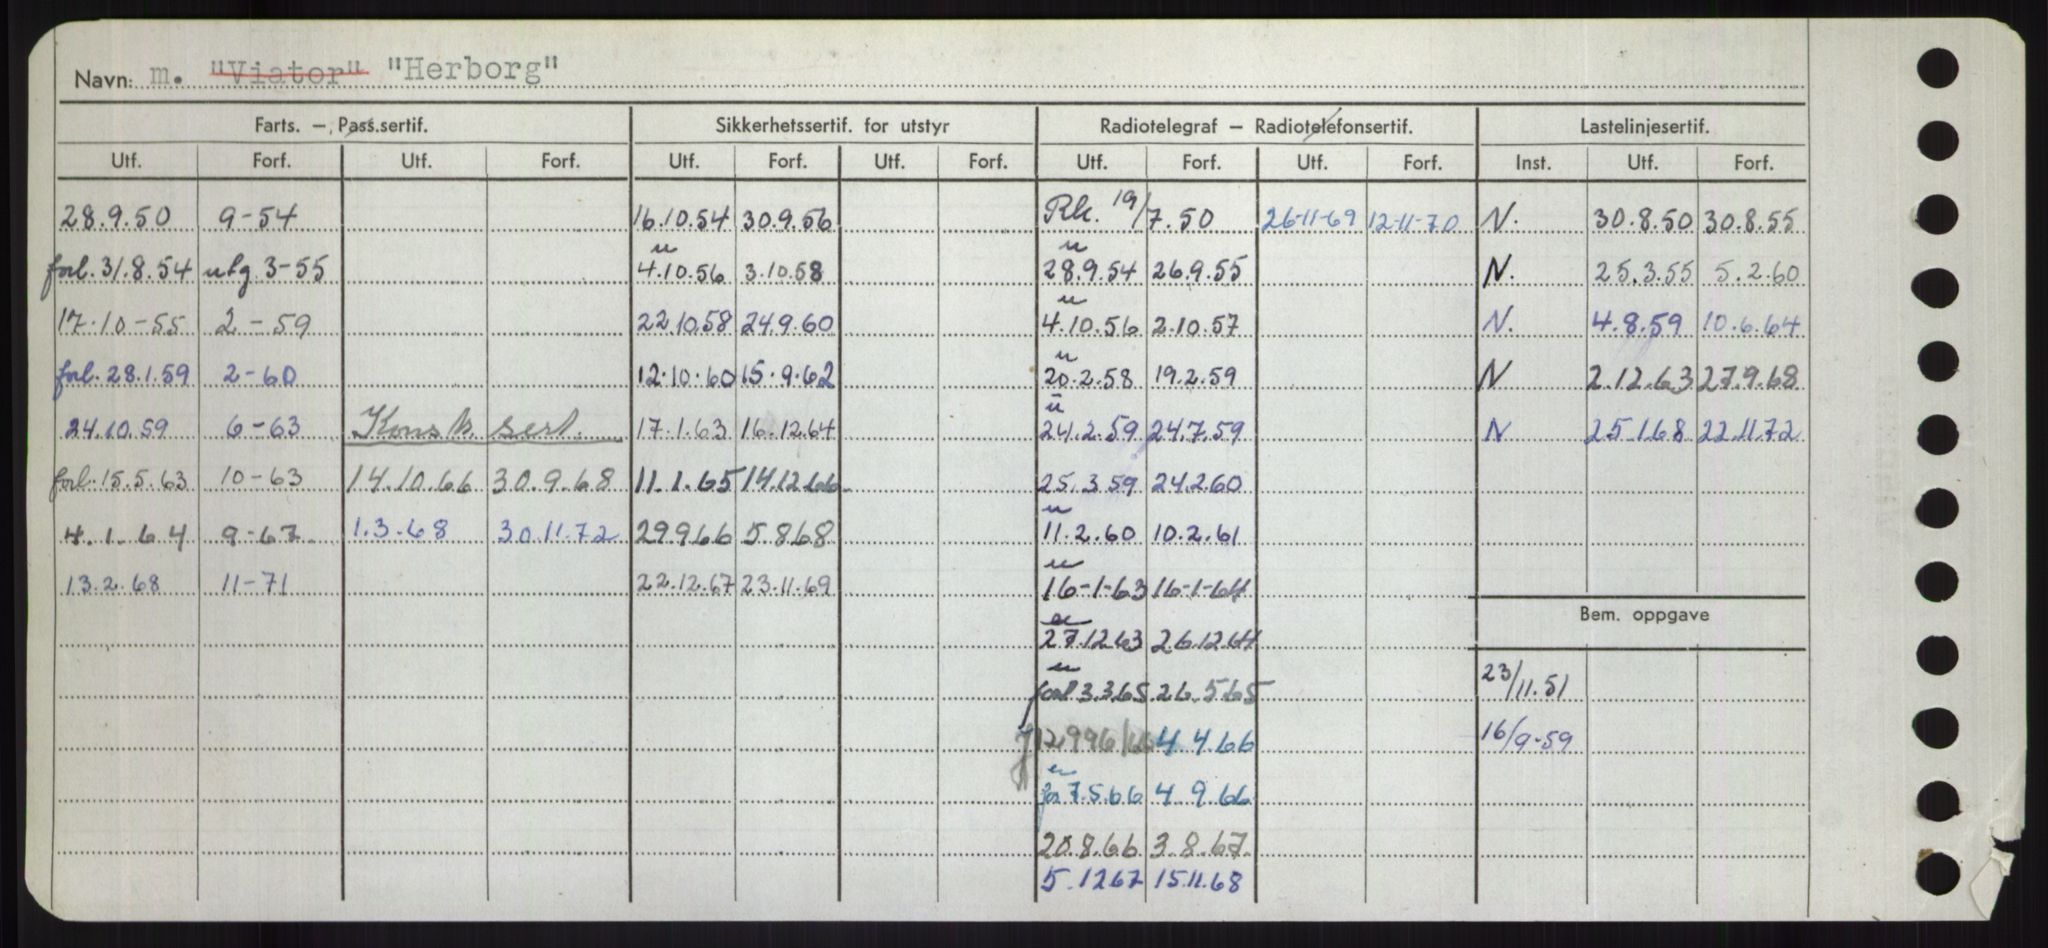 Navn: m. "Viator" "Herborg"
Farts. – Pass.sertif. Sikkerhetssertif. for utstyr Radiotelegraf – Radiotelefonsertif. Lastelinjesertif.
Utf. Forf. Utf. Forf. Utf. Forf. Utf. Forf. Utf. Forf. Utf. Forf. Inst. Utf. Forf.
28.9.50 9-54 16.10.54 30.9.56 Rk. 19/7.50 26-11-69 12-11-70 N. 30.8.50 30.8.55
forl. 31.8.54 utg 3-55 u 4.10.56 3.10.58 u 28.9.54 26.9.55 N. 25.3.55 5.2.60
17.10-55 2-59 22.10.58 24.9.60 u 4.10.56 2.10.57 N. 4.8.59 10.6.64
forl. 28.1.59 2-60 12.10.60 15.9.62 u 20.2.58 19.2.59 N 2.12.63 27.9.68
24.10.59 6-63 Konstr. sert. 17.1.63 16.12.64 u 24.2.59 24.7.59 N 25.1.68 22.11.72
forl. 15.5.63 10-63 14.10.66 30.9.68 11.1.65 14.12.66 25.3.59 24.2.60
4.1.64 9-67 1.3.68 30.11.72 29.9.66 5.8.68 u 11.2.60 10.2.61
13.2.68 11-71 22.12.67 23.11.69 u 16-1-63 16-1-64
Bem. oppgave
u 27.12.63 26.12.64
u forl 3.3.65 26.5.65 23/11.51
4.4.66 16/9-59
7.5.66 4.9.66
20.8.66 3.8.67
5.12.67 15.11.68